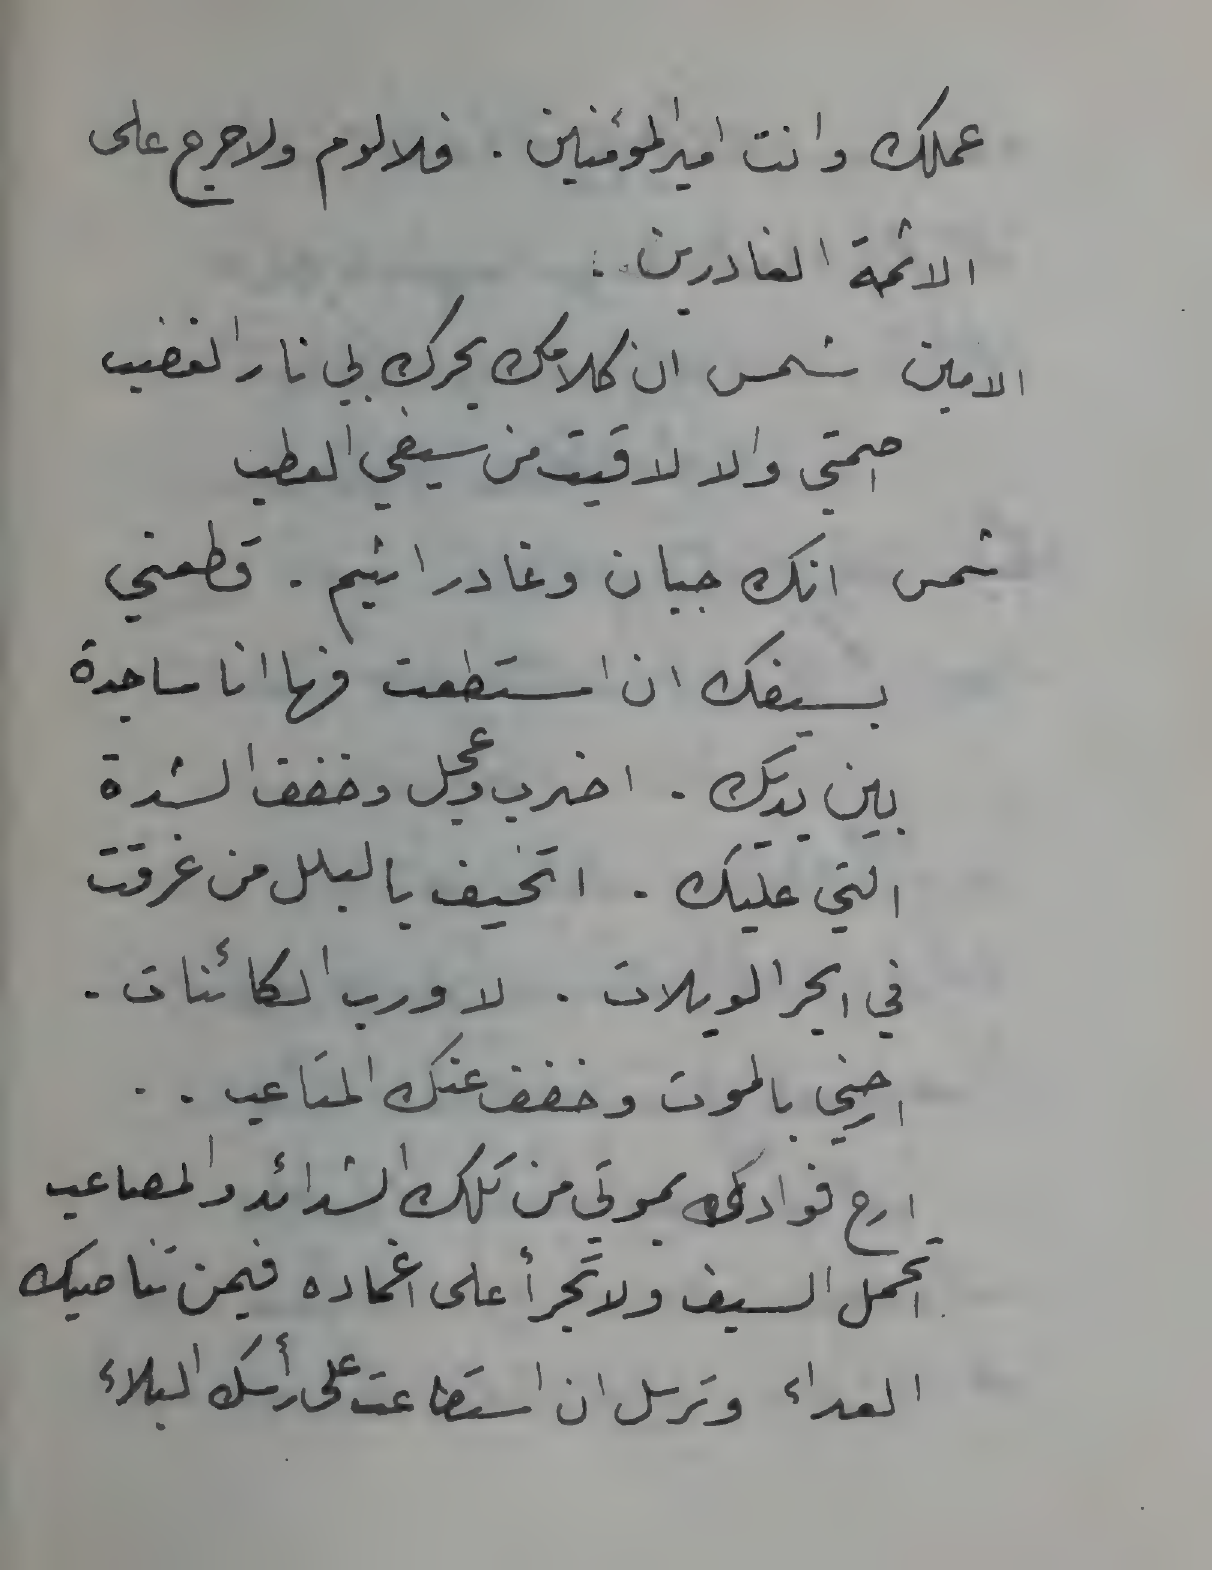 عملك وانت امير المؤمنين . فلا لوم ولا حرج على
الائمة الغادرين ..
الامين شمس ان كلامك يحرك بي نار الغضب
اصمتي والا لاقيت من سيفي العطب
شمس انك جبان وغادر اثيم . قطعني
بسيفك ان استطعت فها انا ساجدة
بين يديك . اضرب وعجل وخفف الشدة
التي عليك . اتخيف بالبلل من غرقت
في ابحر الويلات . لا ورب الكائنات .
اجني بالموت وخفف عنك المتاعب . .
ارح فوادك بموتي من تلك الشدائد والمصاعب
اتحمل السيف ولا تجرأ على اغماده فيمن تناصبك
العداء وترسل ان استطاعت على رأسك البلاء